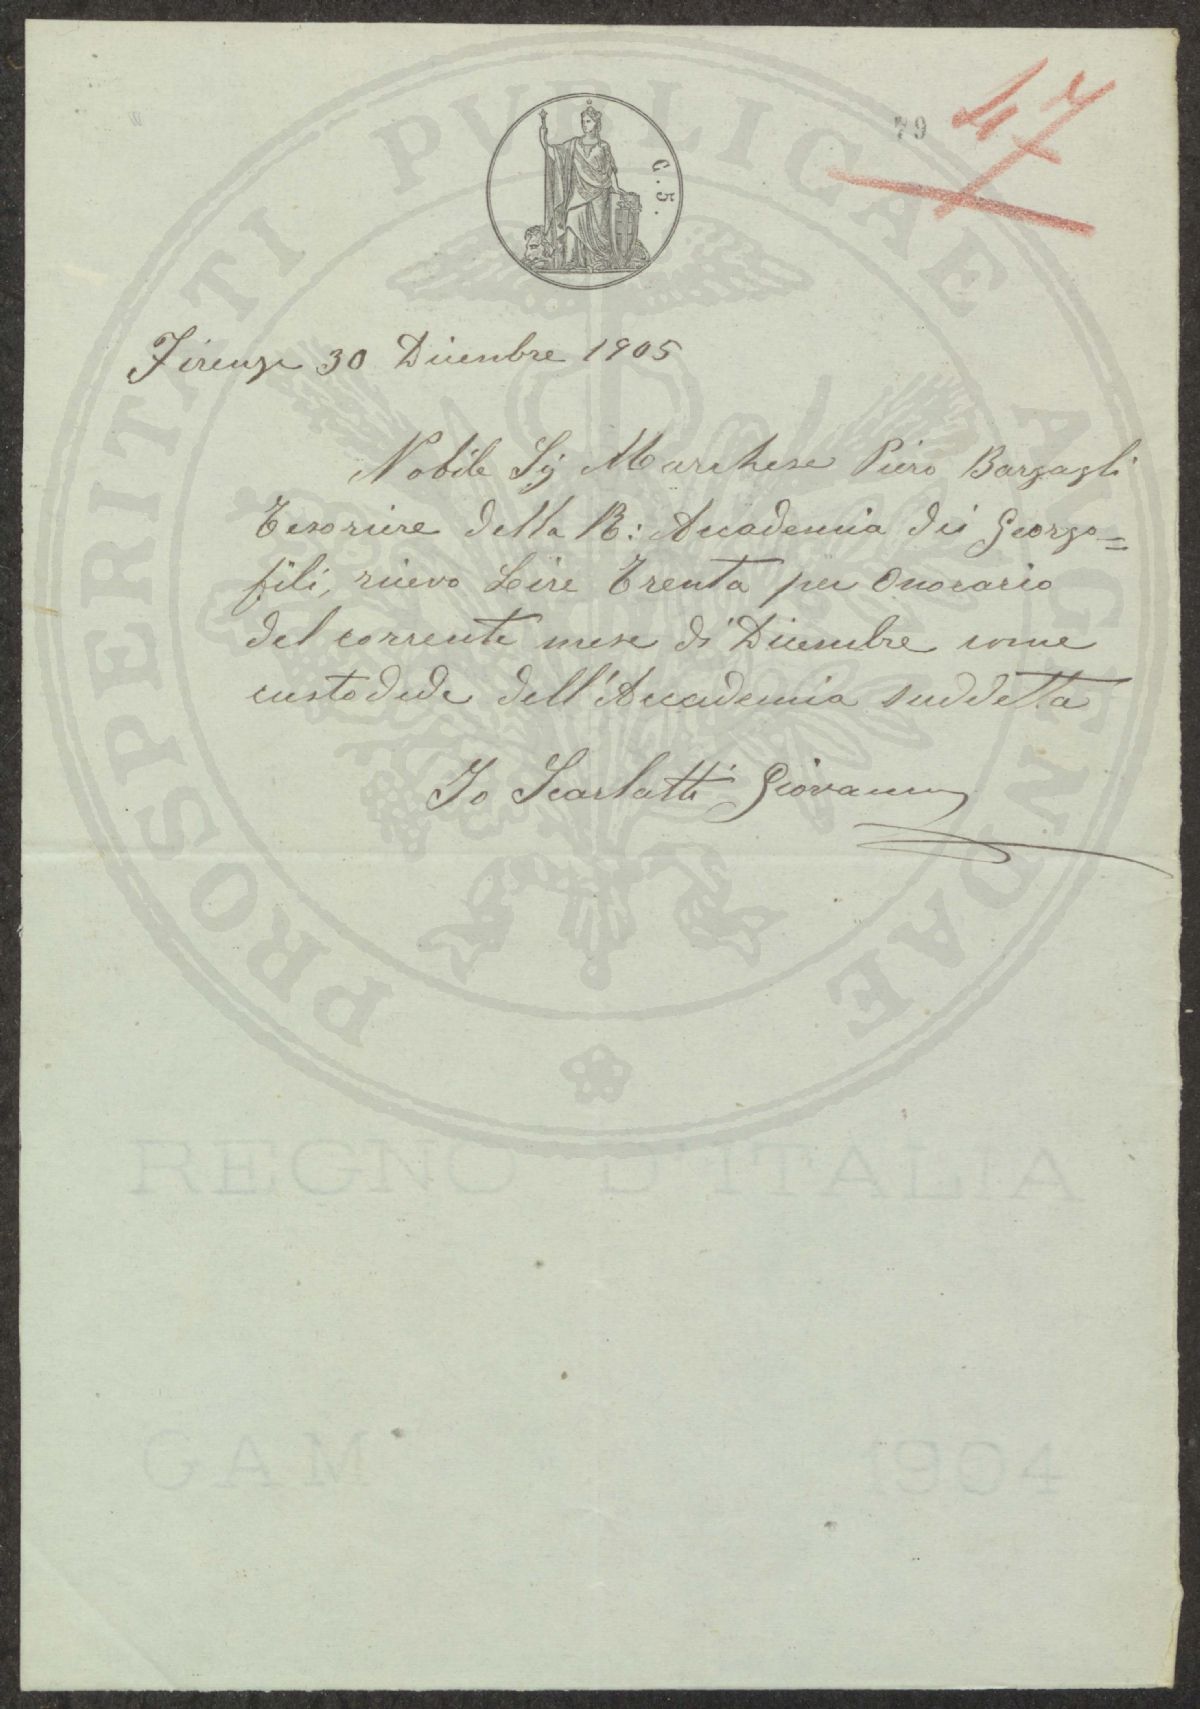 PROSPERITATI PUBLICAE AUGENDAE
C. 5.
79
47
Firenze 30 Dicembre 1905
Nobile Sig Marchese Piero Bargagli
Tesoriere della R: Accademia dei Georgo=
fili, ricevo Leire Trenta per Onorario
del corrente mese di Dicembre come
custodede dell'Accademia suddetta
Io Scarlatti Giovanni
REGNO D'ITALIA
GAM 1904